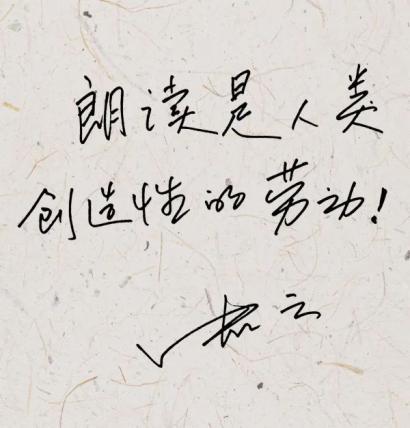 朗读是人类
创造性的劳动!